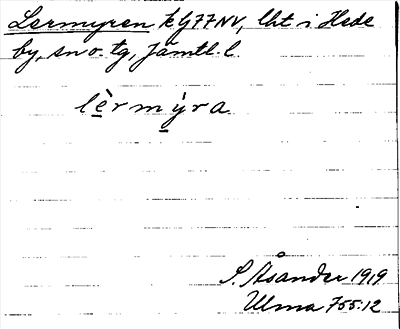 Lermyren kG77NV, lht i Hede
by, sn o. tg, Jämtl. l.
lèrmýra
S. Åsander 1919
Ulma 755:12